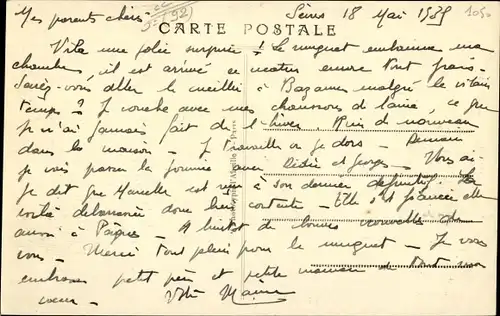 Mes parents chéris
Sèvres 18 Mai 1939
CARTE POSTALE
Voilà une jolie surprise ! Le muguet embaume ma
chambre, il est arrivé ce matin encore tout frais -
Savez-vous aller le cueillir à malgré le vilain
temps ? Je couche avec mes chaussons de laine, ce que
je n'ai jamais fait de l'hiver. Rien de nouveau
dans la maison - Je travaille et je dors - Demain
je vais passer la journée avec et Georges - Vous ai-
je dit que Marcelle est à son dernier La
voilà débarrassée donc bien contente - Elle s'est fiancée elle
aussi à Pâques - A bientôt de bonnes nouvelles de
vous - Merci tout plein pour le muguet - Je vous
embrasse petit père et petite maman de tout mon
coeur - Votre